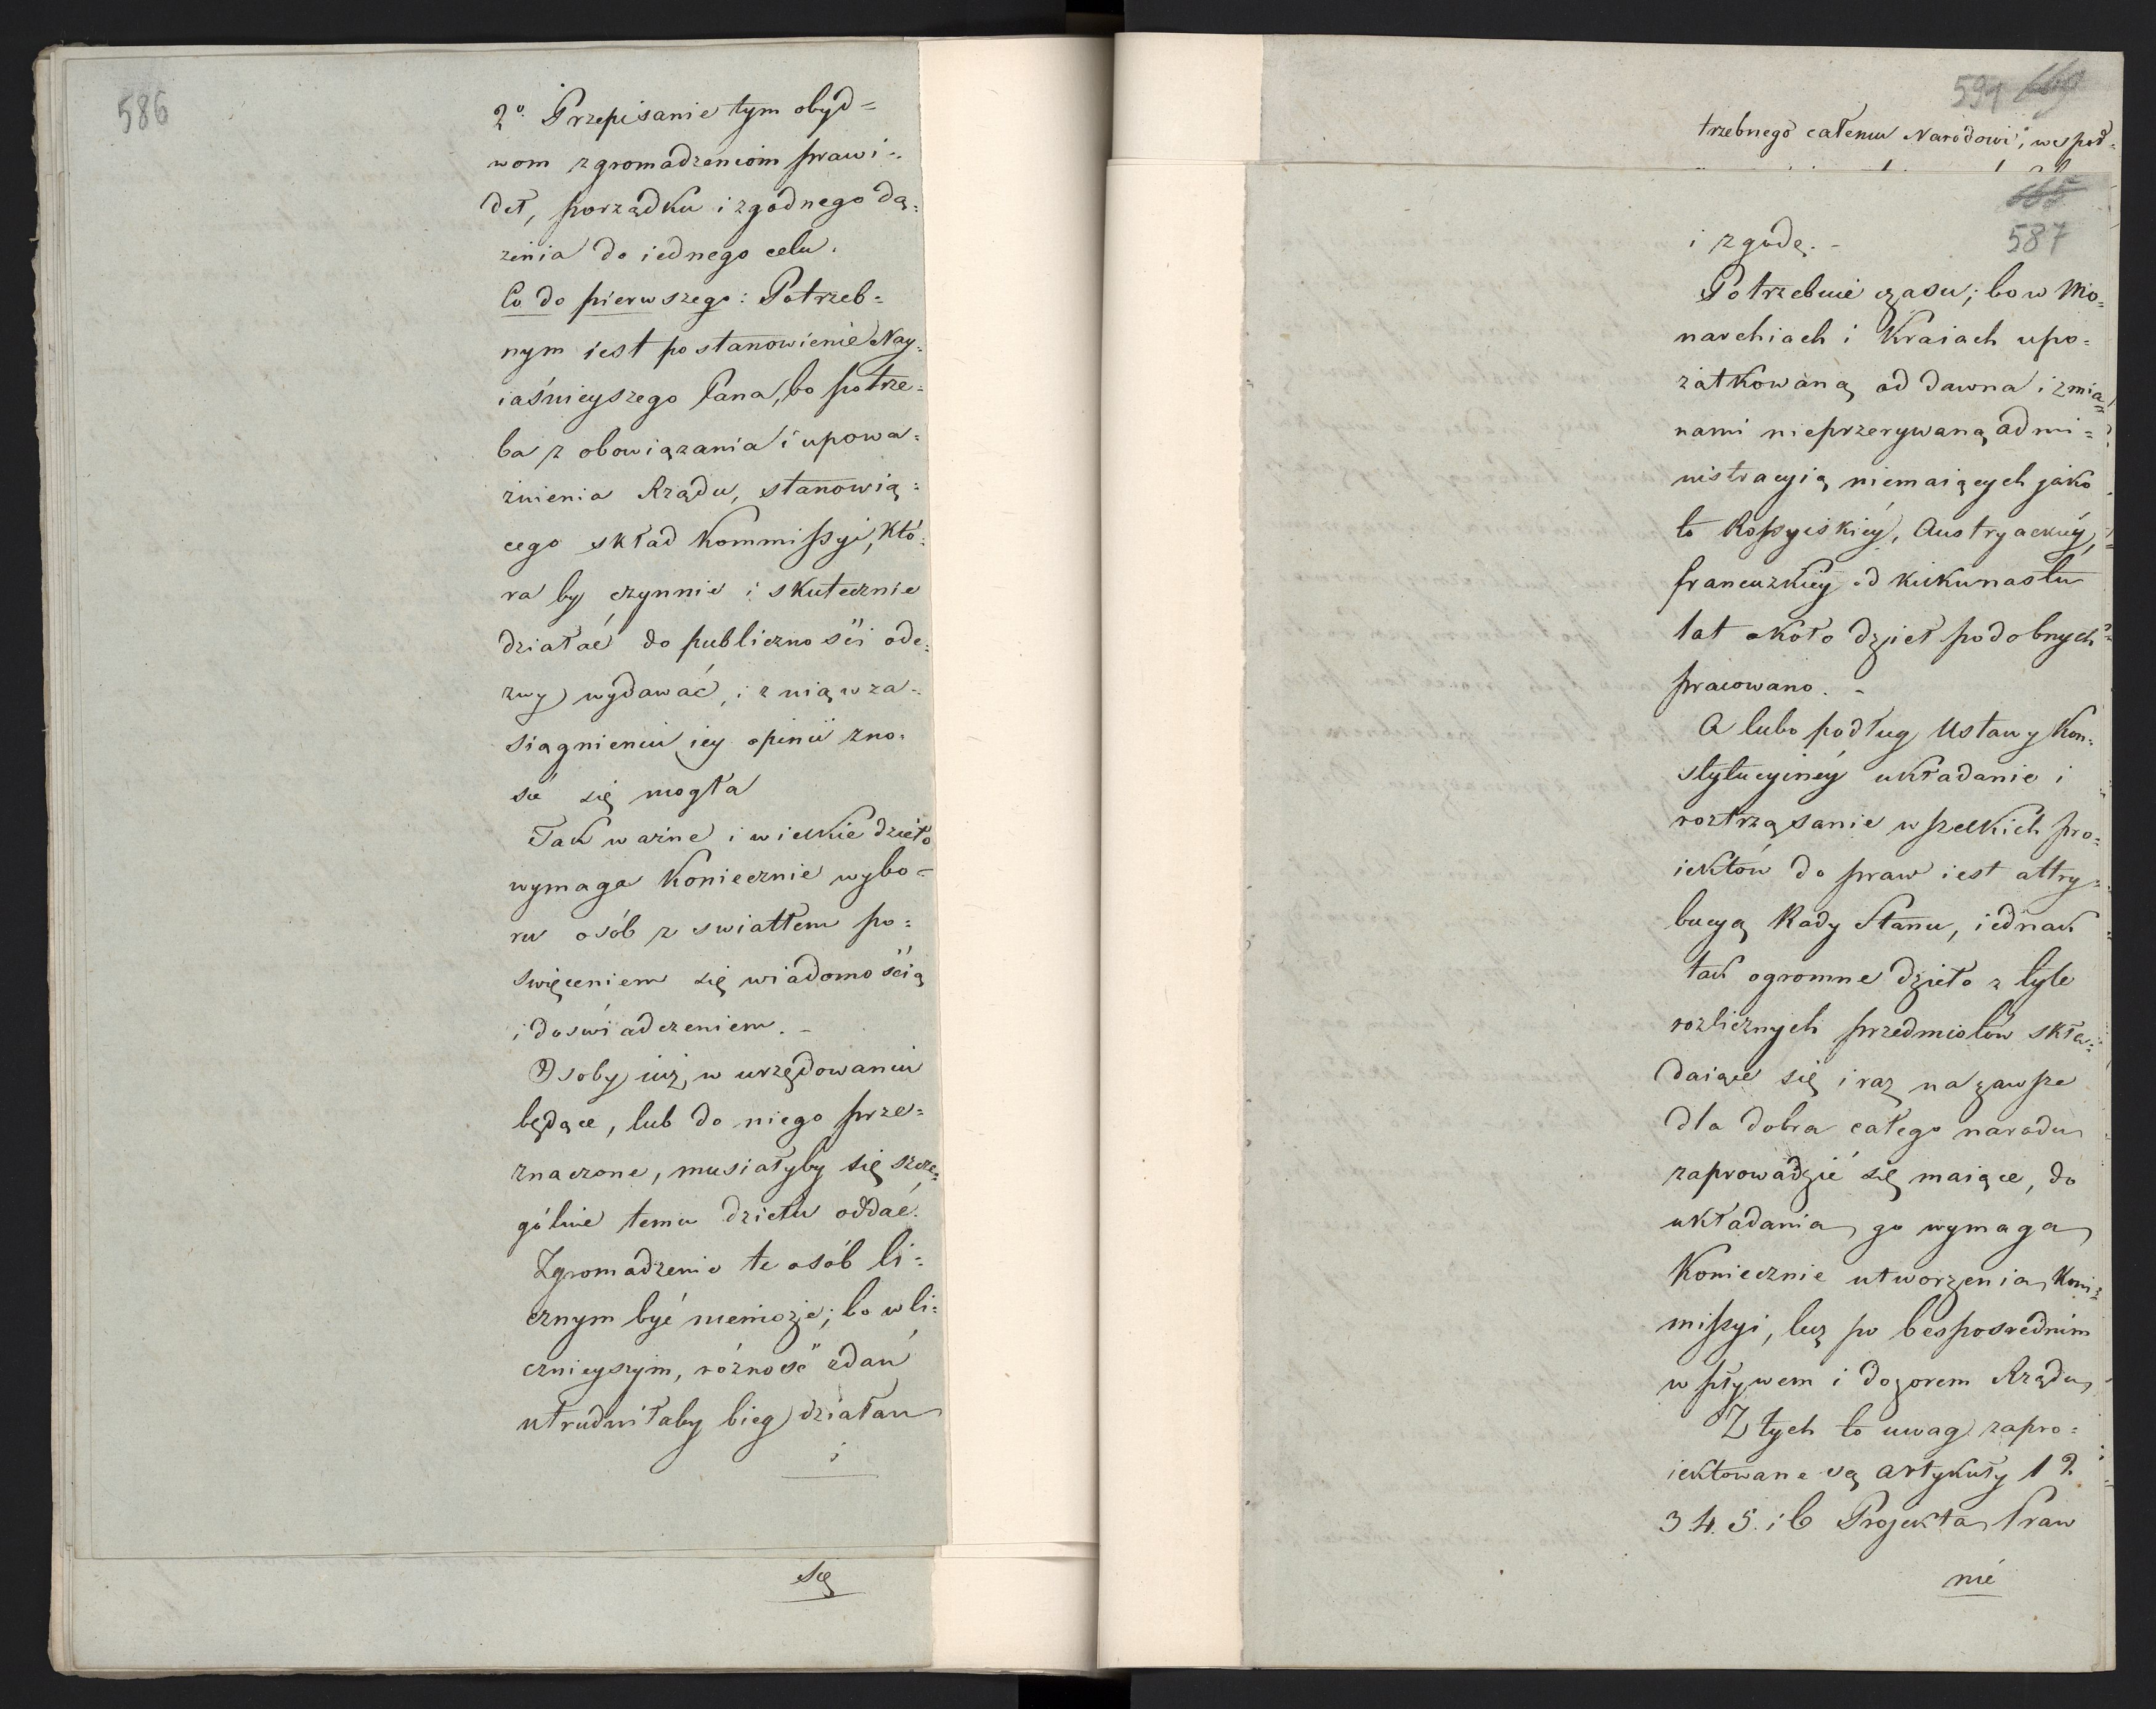 586
2o. Przepisanie tym obyd=
wom zgromadzeniom prawi=
deł, porządku i zgodnego dą=
żenia do iednego celu.
Co do pierwszego: Potrzeb=
nym iest postanowienie Nay=
iaśnieyszego Pana, bo potrze=
ba zobowiązania i upowa=
żnienia Rządu, stanowią=
cego skład Kommissyi, któ=
ra by czynnie i skutecznie
działać do publiczności ode=
zwy wydawać, i z nią w za=
siągnieniu iey opinii zno=
sić się mogła
Tak ważne i wielkie dzieło
wymaga koniecznie wybo=
ru osób z swiatłem po=
swięceniem się wiadomością
i doświadczeniem. -
Osoby iuż, w urzędowaniu
będące, lub do niego prze=
znaczone, musiałyby się szcze=
gólnie temu dziełu oddać.
Zgromadzenie te osób li=
cznym być niemoże; bo w li=
cznieyszym, różność zdań
utrudniłaby bieg działań
i
się
591 669
trzebnego całemu Narodowi, wespoł=
665
587
i zgodę. -
Potrzebuie czasu; bo w Mo=
narchiach i Kraiach upo=
rzątkowaną od dawna i zmia=
nami nieprzerywaną admi=
nistracyią niemaiących jako
to Rossyiskiey, Austryackiey,
francuzkiey od kilkunastu
lat około dzieł podobnych
pracowano. -
A lubo podług Ustawy Kon=
stytucyiney układanie i
roztrząsanie wszelkich pro=
iektów do praw iest attry=
bucyą Rady Stanu, iednak
tak ogromne dzieło z tyle
rozlicznych przedmiotów skła=
daiące się i raz na zawsze
dla dobra całego narodu
zaprowadzić się maiące, do
układania go wymaga
koniecznie utworzenia Kom=
missyi, lecz po besposrednim
wpływem i dozorem Rządu,
Z tych to uwag zapro=
iektowane są artykuły 1 2.
3 4. 5. i 6 Projekta Praw
nie